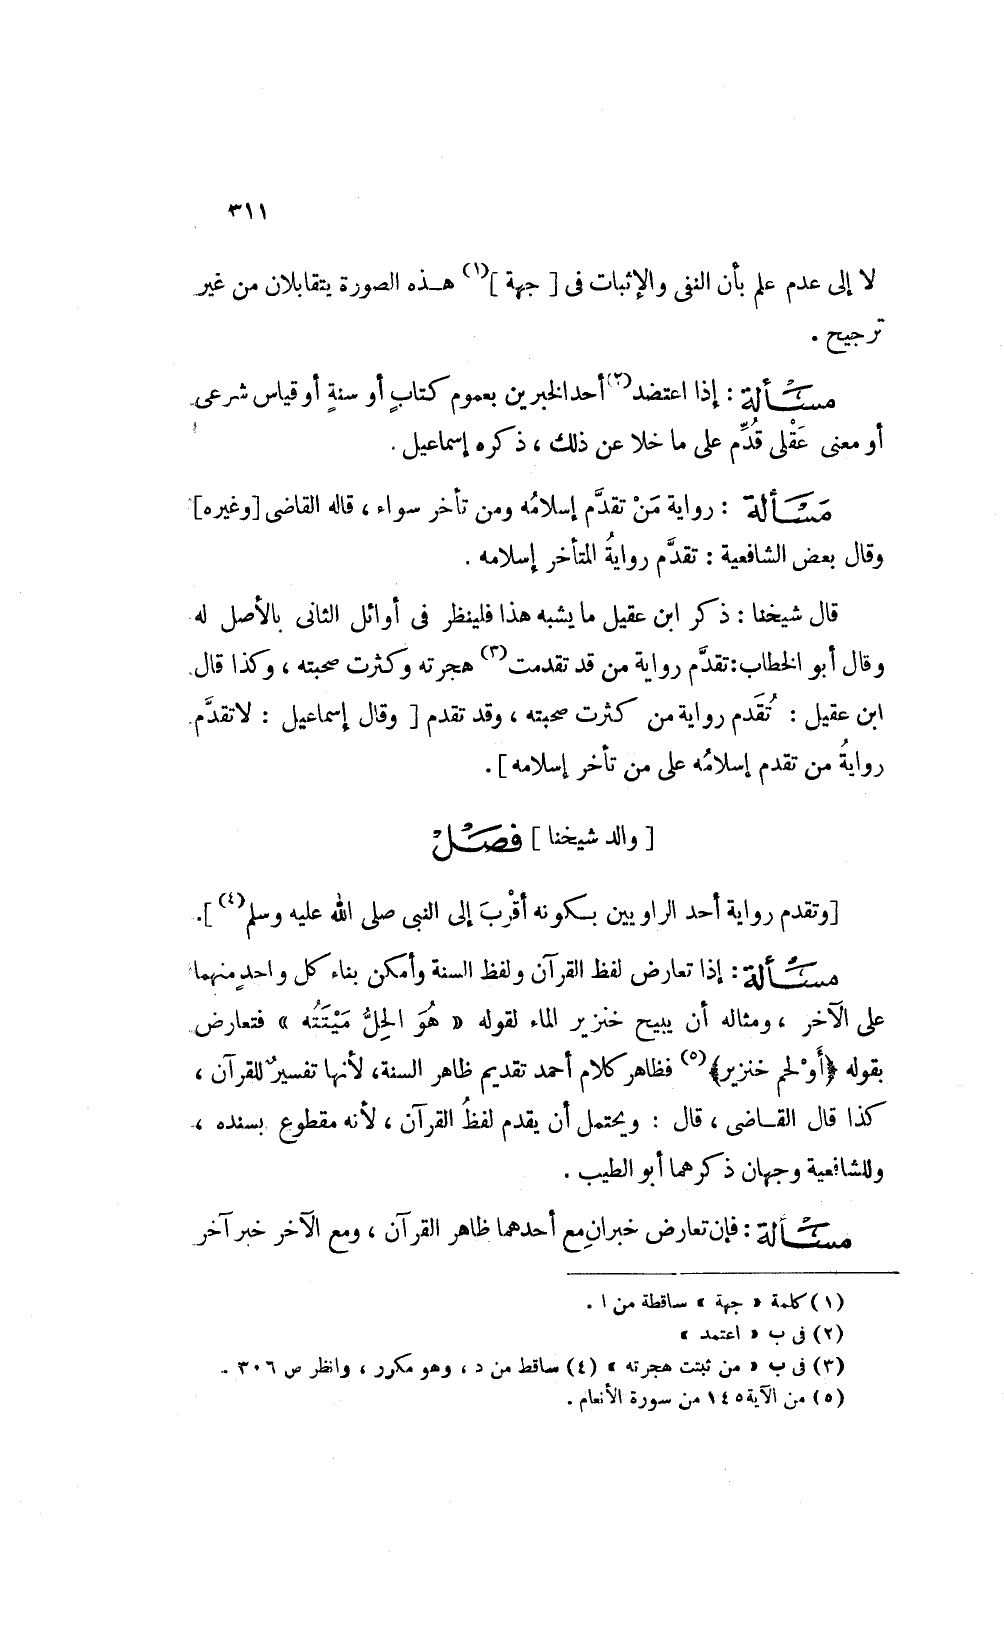 ٣١١
لا إلى عدم علم بأن النفى والإثبات فى [ جهة ](١) هـذه الصورة يتقابلان من غير
ترجيح .
مسألة : إذا اعتضد(٢) أحد الخبرين بعموم كتابٍ أو سنةٍ أو قياس شرعى
أو معنى عَقْلى قُدِّم على ما خلا عن ذلك ، ذكره إسماعيل .
مَسْأَلة : رواية مَنْ تقدَّم إسلامُه ومن تأخر سواء ، قاله القاضى [وغيره]
وقال بعض الشافعية : تقدَّم روايةُ المتأخر إسلامه .
قال شيخنا : ذكر ابن عقيل ما يشبه هذا فلينظر فى أوائل الثانى بالأصل له
وقال أبو الخطاب: تقدَّم رواية من قد تقدمت(٣) هجرته وكثرت صحبته ، وكذا قال
ابن عقيل : تُقَدم رواية من كثرت صحبته ، وقد تقدم [ وقال إسماعيل : لاتقدَّم
روايةُ من تقدم إسلامُه على من تأخر إسلامه ] .
[ والد شيخنا ] فَصَـْلْ
[وتقدم رواية أحد الراويين بـكونه أقْرَبَ إلى النبى صلى الله عليه وسلم(٤) ].
مسْألة : إذا تعارض لفظ القرآن ولفظ السنة وأمكن بناء كل واحدٍ منهما
على الآخر ، ومثاله أن يبيح خنزير الماء لقوله « هُوَ الحِلُّ مَيْتَتُه » فتعارض
بقوله ﴿أَوْ لحم خنزير﴾(٥) فظاهر كلام أحمد تقديم ظاهر السنة، لأنها تفسيرٌ للقرآن ،
كذا قال القـاضى ، قال : ويحتمل أن يقدم لفظُ القرآن ، لأنه مقطوع بسنده ،
وللشافعية وجهان ذكرهما أبو الطيب .
مسْألة : فإن تعارض خبرانِ مع أحدهما ظاهر القرآن ، ومع الآخر خبر آخر
(١) كلمة « جهة » ساقطة من ا .
(٢) فى ب « اعتمد »
(٣) فى ب « من ثبتت هجرته » (٤) ساقط من د ، وهو مكرر ، وانظر ص ٣٠٦ .
(٥) من الآية ١٤٥ من سورة الأنعام .